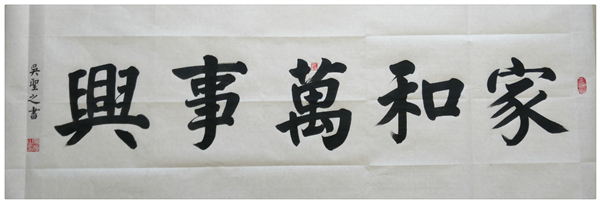 家和萬事興
吳聖之書